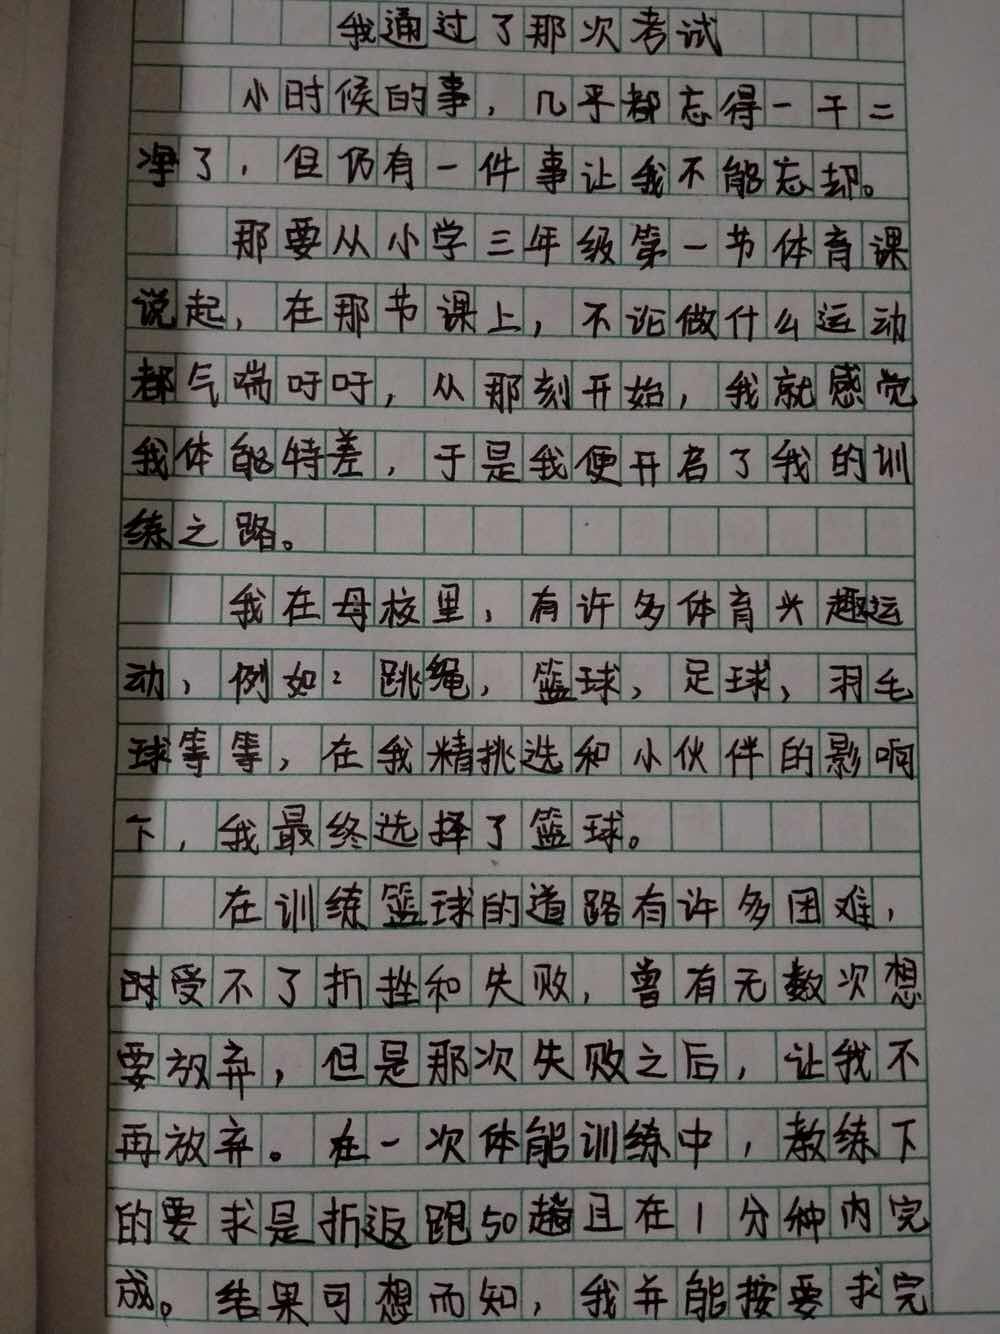 我通过了那次考试
小时候的事，几乎都忘得一干二
净了，但仍有一件事让我不能忘却。
那要从小学三年级第一节体育课
说起，在那节课上，不论做什么运动
都气喘吁吁，从那刻开始，我就感觉
我体能特差，于是我便开启了我的训
练之路。
我在母校里，有许多体育兴趣运
动，例如：跳绳，篮球，足球，羽毛
球等等，在我精挑选和小伙伴的影响
下，我最终选择了篮球。
在训练篮球的道路有许多困难，
时受不了折挫和失败，曾有无数次想
要放弃，但是那次失败之后，让我不
再放弃。在一次体能训练中，教练下
的要求是折返跑50趟且在1分种内完
成。结果可想而知，我并能按要求完